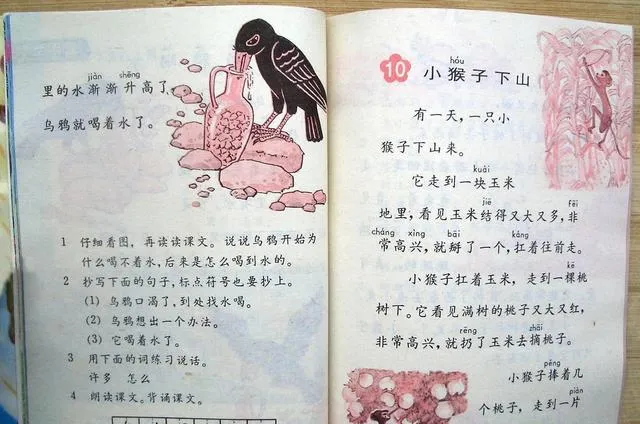 jiàn shēng
里的水渐渐升高了,
乌鸦就喝着水了。
1 仔细看图，再读读课文。说说乌鸦开始为
什么喝不着水，后来是怎么喝到水的。
2 抄写下面的句子，标点符号也要抄上。
(1) 乌鸦口渴了，到处找水喝。
(2) 乌鸦想出一个办法。
(3) 它喝着水了。
3 用下面的词练习说话。
许多 怎么
4 朗读课文。背诵课文。
hóu
10 小猴子下山
有一天，一只小
猴子下山来。
kuài
它走到一块玉米
jiē fēi
地里，看见玉米结得又大又多，非
cháng xìng bāi káng
常高兴，就掰了一个，扛着往前走。
kē
小猴子扛着玉米，走到一棵桃
树下。它看见满树的桃子又大又红，
rēng zhāi
非常高兴，就扔了玉米去摘桃子。
pěng
小猴子捧着几
piàn
个桃子，走到一片